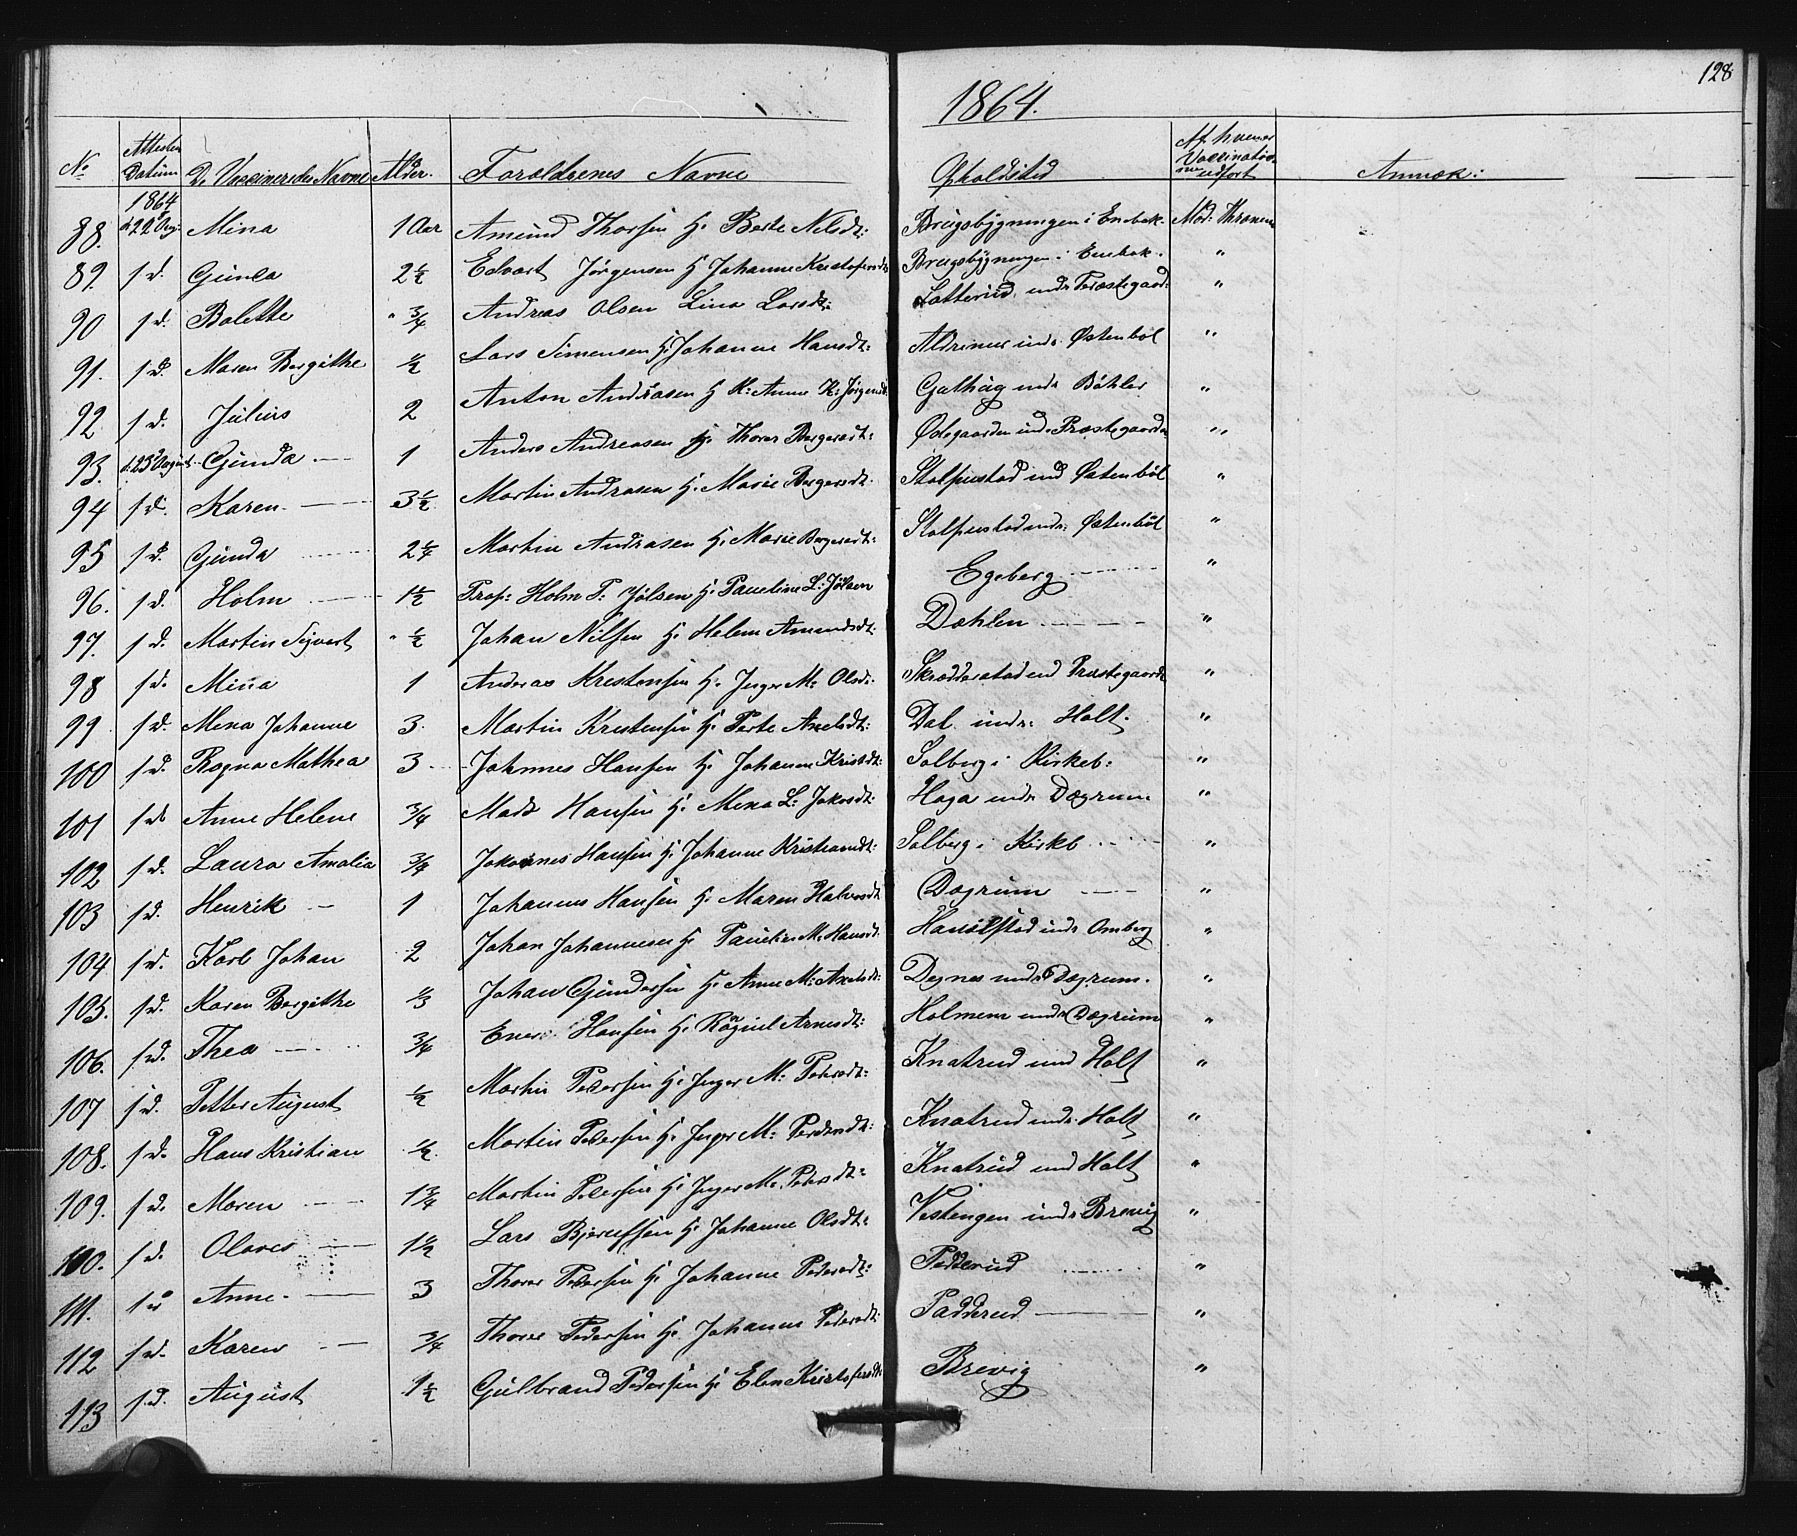 128
1864.
No Attesten Datum De Vaccineredes Navne Alder. Forældrenes Navne Opholdsted Af hvem Vaccination udført Anmærk:
1864
88. d. 22 Aug: Mina 1 Aar Amund Thorsen H. Berte Nilsdt: Brugsbygningen i Enebak. Med. Thronsen
89. s d. Gunea 2½ Edvart Jørgensen H Johanne Kristofersdt Brugsbygningen i Enebak. "
90 s d. Bolette " ¾ Andreas Olsen Lina Larsdt: Latterud. und Præstegaard: "
91. s d. Maren Bergithe ½ Lars Simensen H. Johanne Hansdt: Aldrimer und. Østenbøl "
92. s d. Julius 2 Anton Andrasen H K: Anne K: Jørgensdt Galhug und. Bøhler "
93. d. 25 August. Gunda 1 Anders Andreasen H. Thorer Borgersdt: Ødegaarden und. Præstegaarden "
94 s d. Karen. 3½ Martin Andrasen H. Marie Borgersdt. Stolpestad und Østenbøl "
95 s d. Gunda 2¼ Martin Andrasen H. Marie Borgersdt: Stolpestad und: Østenbøl "
96. s d. Holm 1½ Prop: Holm P: Jølsen H. Pauline L: Jølsen Egeberg "
97. s d. Martin Sigvert " ½ Johan Nilsen H. Helene Amundsdt. Dæhlen "
98 s d. Mina 1 Anderas Kristensen H. Inger M: Olsdt: Skræddarstad und Præstegaarden "
99 s d. Mena Johanne 3. Martin Kristensen H. Berte Axelsdt: Dal und: Holt. "
100 s d. Ragna Mathea 3 Johannes Hansen H. Johanne Kristsdt: Solberg i Kirkeb: "
101 s d Anne Helene ¾ Mads Hansen H. Mena L: Jakobsdt: Haga und. Dægrum "
102 s d. Laura Amalia ¾ Johannes Hansen H. Johanne Kristiansdt: Solberg i Kirkb "
103 s d. Henrik 1 Johannes Hansen H. Maren Halvorsdt Dægrum "
104 s d. Karl Johan 2 Johan Johannesen H Pauline M. Hansdt: und. Omberg "
105. s d. Karen Bergithe ⅓ Johan Gundersen H. Anne M: Axelsdt: Degnes und. Dægrum. "
106. s d. Thea ¾ Ener Hansen H. Ragnel Arnesdt: Holmene und. Dægrum "
107 s d. Petter August ½ Martin Pedersen H. Inger M. Pedersdt: Knatrud und Holt "
108. s d. Hans Kristian ½ Martin Pedersen H. Inger M: Pedersdt: Knatrud und. Holt "
109. s d. Maren 1¾ Martin Pedersen H. Inger M. Pedersdt: Knatrud und Holt "
100. s d. Olaves 1½ Lars H. Johanne Olsdt: Vestengen und. Brevig "
111. s d Anne. 3 Thorer Pedersen H. Johanne Pedersdt: Padderud "
112 s d. Karen ¾ Thorer Pedersen H. Johanne Pedersdt: Padderud "
113 s d. August 1½ Gulbrand Pedersen H. Elen Kristofersdt Brevig "